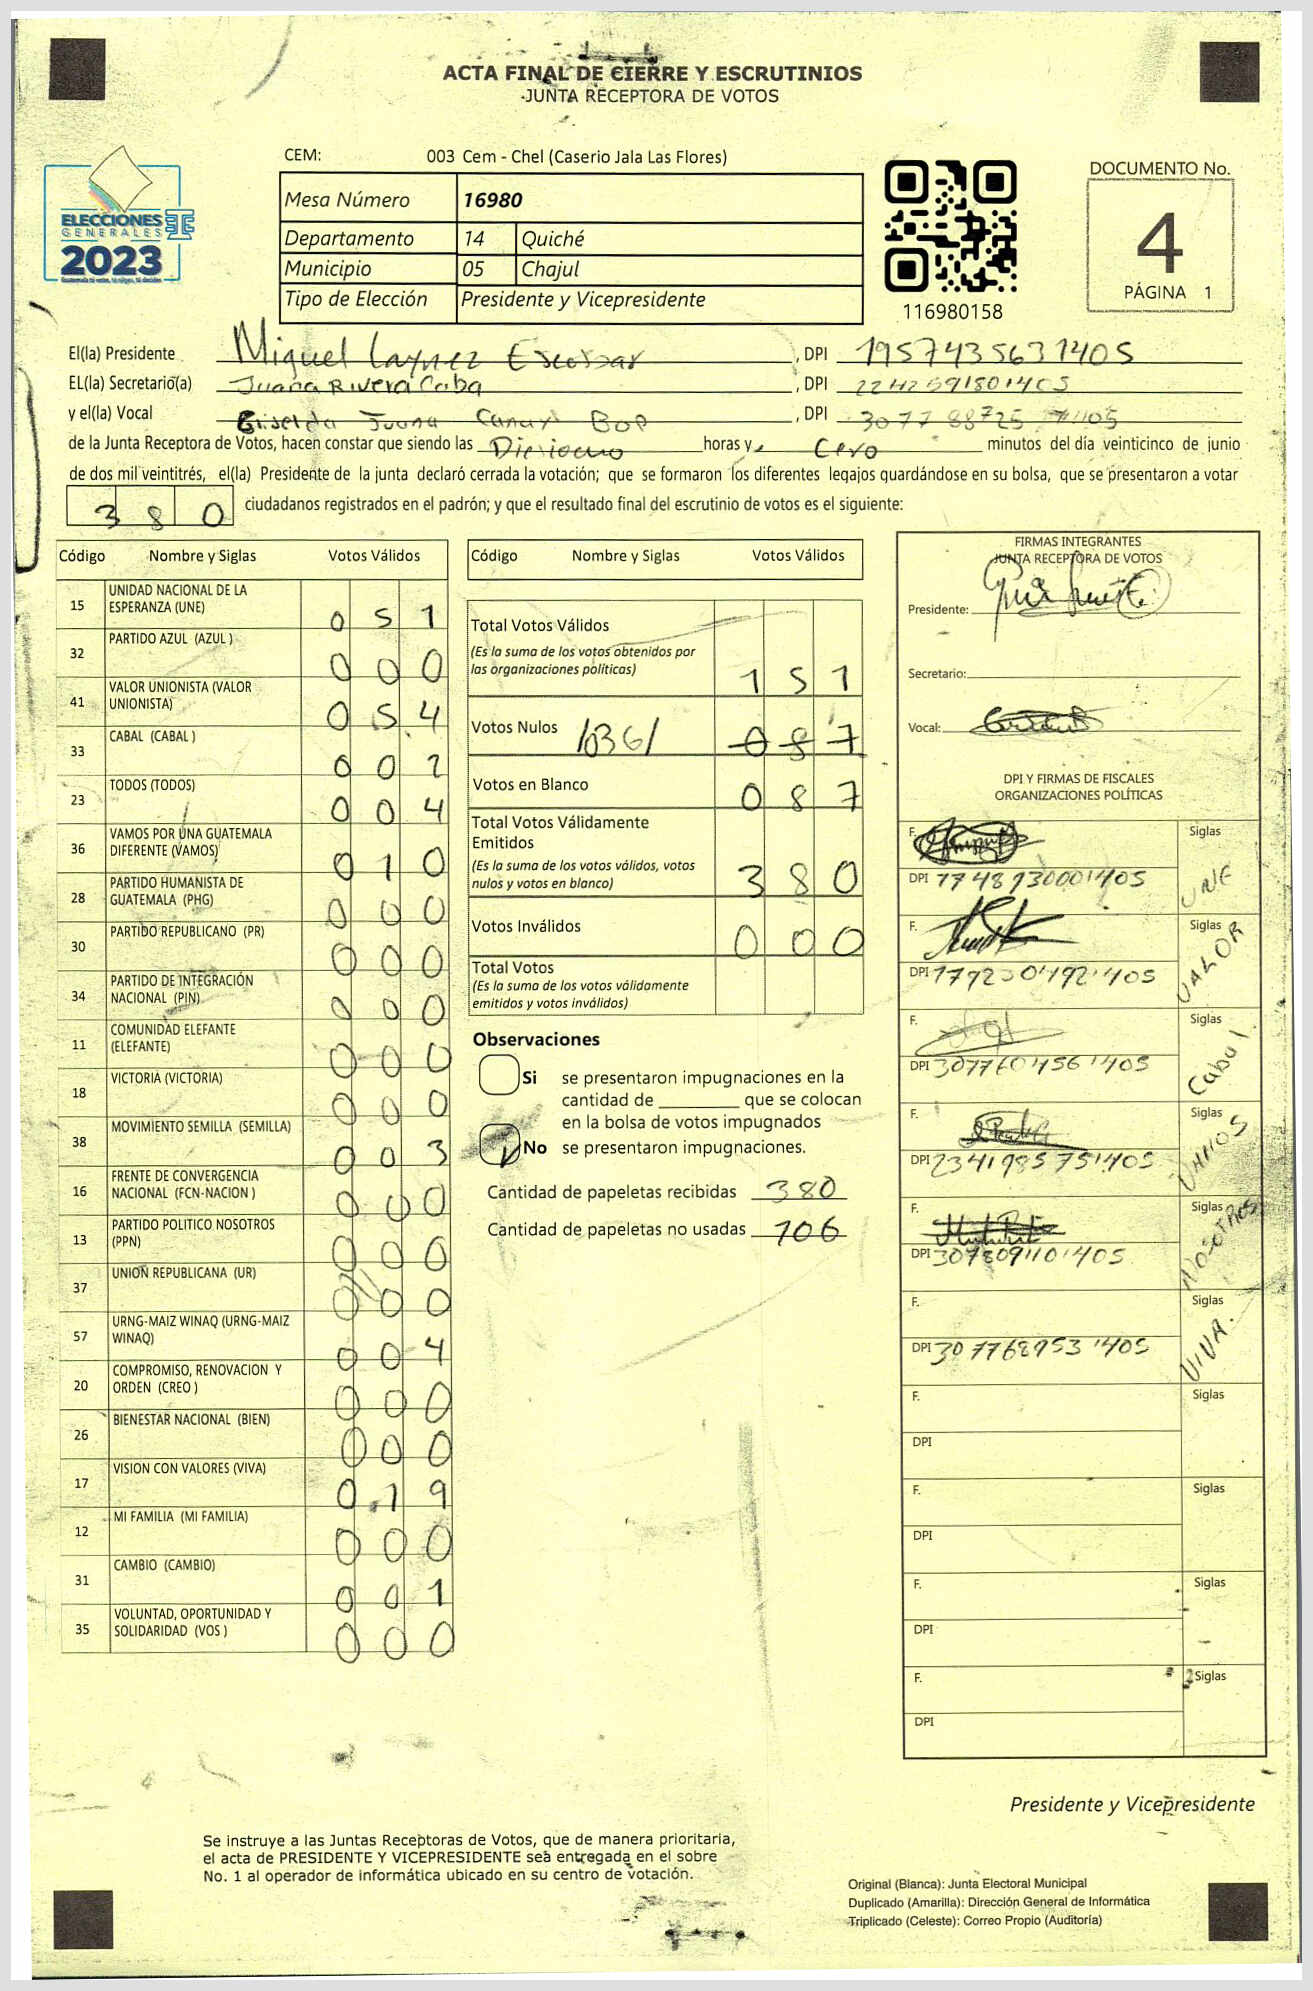 ACTA FINAL DE CIERRE Y ESCRUTINIOS
JUNTA RECEPTORA DE VOTOS
CEM: 003 Cem - Chel (Caserio Jala Las Flores)
ELECCIONES
GENERALES
2023
Mesa Número 16980
Departamento 14 Quiché
Municipio 05 Chajul
Tipo de Elección Presidente y Vicepresidente
116980158
DOCUMENTO No.
4
PÁGINA 1
El(la) Presidente Miguel Laynez Escobar , DPI 1957435631405
EL(la) Secretario(a) Juana Rivera Caba , DPI 2242691801405
y el(la) Vocal Juana , DPI
de la Junta Receptora de Votos, hacen constar que siendo las horas y Cero minutos del día veinticinco de junio
de dos mil veintitrés, el(la) Presidente de la junta declaró cerrada la votación; que se formaron los diferentes legajos quardándose en su bolsa, que se presentaron a votar
380 ciudadanos registrados en el padrón; y que el resultado final del escrutinio de votos es el siguiente:
Código Nombre y Siglas Votos Válidos
15 UNIDAD NACIONAL DE LA ESPERANZA (UNE) 051
32 PARTIDO AZUL (AZUL ) 000
41 VALOR UNIONISTA (VALOR UNIONISTA) 054
33 CABAL (CABAL ) 002
23 TODOS (TODOS) 004
36 VAMOS POR UNA GUATEMALA DIFERENTE (VAMOS) 010
28 PARTIDO HUMANISTA DE GUATEMALA (PHG) 000
30 PARTIDO REPUBLICANO (PR) 000
34 PARTIDO DE INTEGRACIÓN NACIONAL (PIN) 000
11 COMUNIDAD ELEFANTE (ELEFANTE) 000
18 VICTORIA (VICTORIA) 000
38 MOVIMIENTO SEMILLA (SEMILLA) 003
16 FRENTE DE CONVERGENCIA NACIONAL (FCN-NACION ) 000
13 PARTIDO POLITICO NOSOTROS (PPN) 000
37 UNION REPUBLICANA (UR) 000
57 URNG-MAIZ WINAQ (URNG-MAIZ WINAQ) 004
20 COMPROMISO, RENOVACION Y ORDEN (CREO ) 000
26 BIENESTAR NACIONAL (BIEN) 000
17 VISION CON VALORES (VIVA) 019
12 MI FAMILIA (MI FAMILIA) 000
31 CAMBIO (CAMBIO) 001
35 VOLUNTAD, OPORTUNIDAD Y SOLIDARIDAD (VOS ) 000
Código Nombre y Siglas Votos Válidos
Total Votos Válidos
(Es la suma de los votos obtenidos por
las organizaciones políticas) 151
Votos Nulos /036/ 087
Votos en Blanco 087
Total Votos Válidamente
Emitidos
(Es la suma de los votos válidos, votos
nulos y votos en blanco) 380
Votos Inválidos 000
Total Votos
(Es la suma de los votos válidamente
emitidos y votos inválidos)
Observaciones
Si se presentaron impugnaciones en la
cantidad de ________ que se colocan
en la bolsa de votos impugnados
No se presentaron impugnaciones.
Cantidad de papeletas recibidas 380
Cantidad de papeletas no usadas 106
FIRMAS INTEGRANTES
JUNTA RECEPTORA DE VOTOS
Presidente:
Secretario:
Vocal:
DPI Y FIRMAS DE FISCALES
ORGANIZACIONES POLÍTICAS
F. Siglas UNE
DPI 1748930001405
F. Siglas VALOR
DPI 1792304921405
F. Siglas Cabal
DPI 3077604561405
F. Siglas VAMOS
DPI 2341985751405
F. Siglas NOSOTROS
DPI 3078091101405
F. Siglas VIVA.
DPI 3077689531405
F. Siglas
DPI
F. Siglas
DPI
F. Siglas
DPI
F. Siglas
DPI
Presidente y Vicepresidente
Se instruye a las Juntas Receptoras de Votos, que de manera prioritaria,
el acta de PRESIDENTE Y VICEPRESIDENTE sea entregada en el sobre
No. 1 al operador de informática ubicado en su centro de votación.
Original (Blanca): Junta Electoral Municipal
Duplicado (Amarilla): Dirección General de Informática
Triplicado (Celeste): Correo Propio (Auditoría)